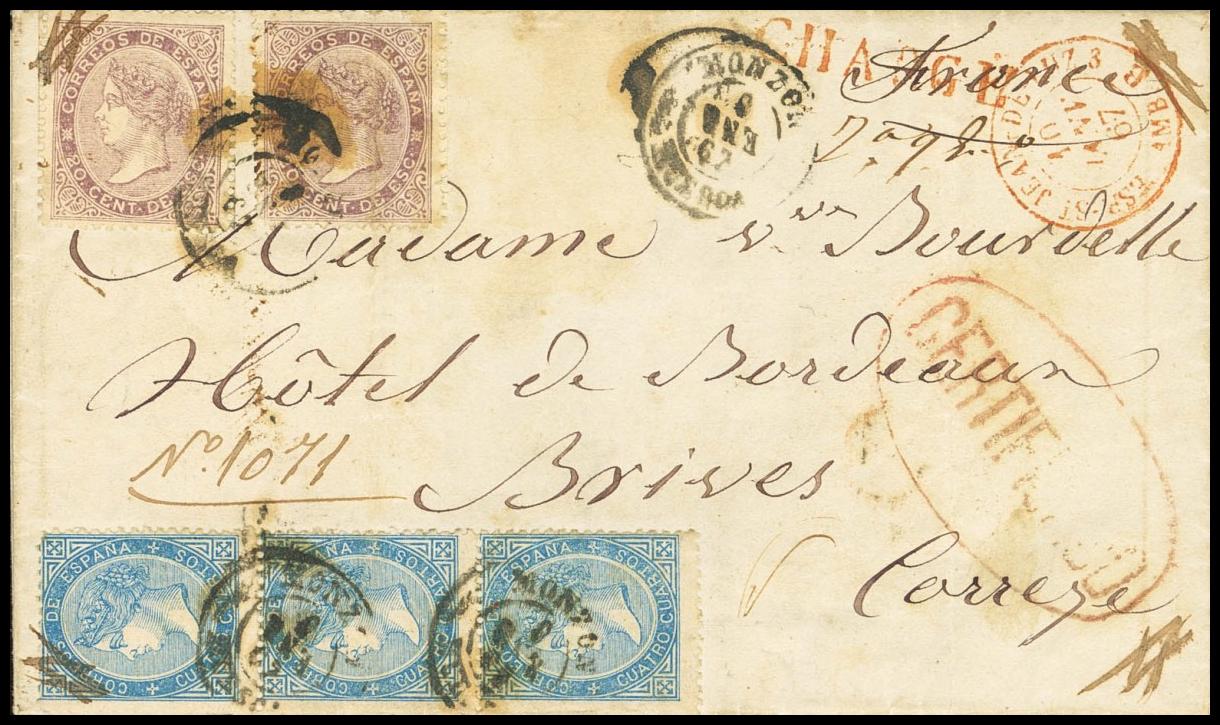 CORREOS DE ESPAÑA
20 CENT. DE ESC.
CORREOS DE ESPAÑA
CENT. DE ESC.
MONZON
ENE
67
CHARGE
France
ESP.
ST JEAN DE LUZ
67
AMB.
Madame Vve Bourdelle
Hôtel de Bordeaux
CERTIFICADO
No. 1071
Brives
Correze
CORREOS DE ESPAÑA
CUATRO CUARTOS
MONZON
CORREOS DE ESPAÑA
CUATRO CUARTOS
MONZON
CORREOS DE ESPAÑA
CUATRO CUARTOS